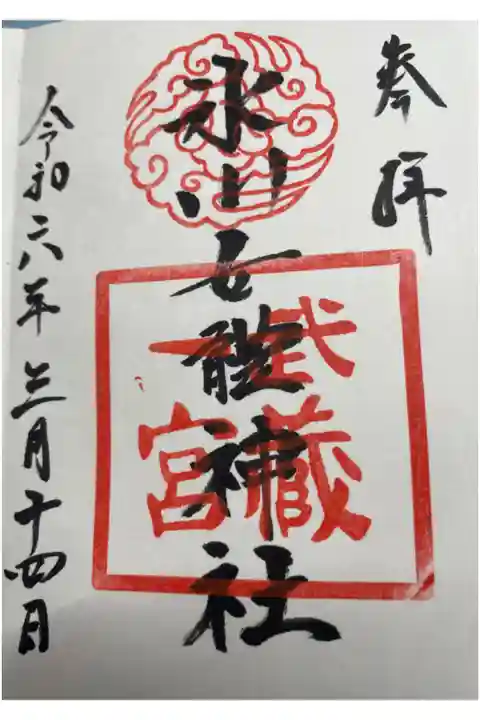 奉拝
武蔵
一宮
氷川女體神社
令和六年三月十四日